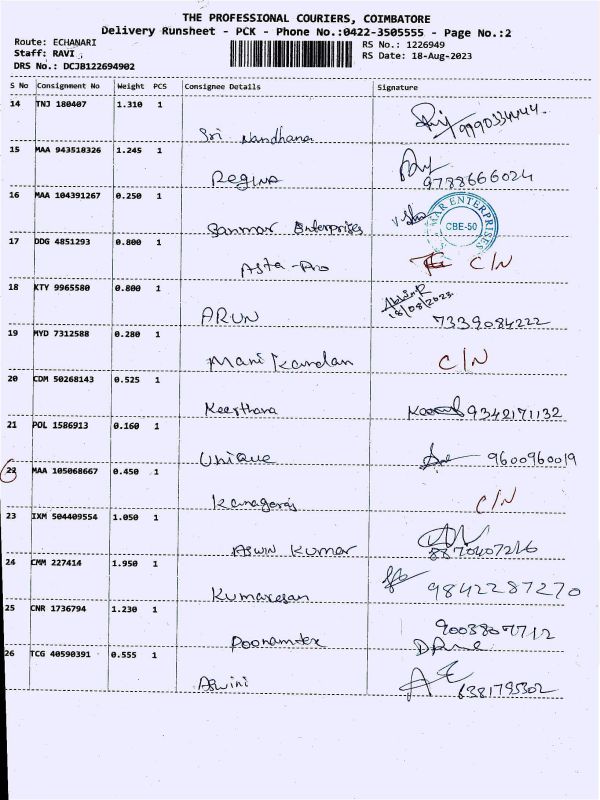 THE PROFESSIONAL COURIERS, COIMBATORE
Delivery Runsheet - PCK - Phone No.:0422-3505555 - Page No.:2
Route: ECHANARI RS No.: 1226949
Staff: RAVI RS Date: 18-Aug-2023
DRS No.: DCJB122694902
S No Consignment No Weight PCS Consignee Details Signature
14 TNJ 180407 1.310 1
Sri Nandhana
15 MAA 943518326 1.245 1
Regina 9788666024
16 MAA 104391267 0.250 1
MAR ENTERPRISES
CBE-50
Sanmar Enterprises
17 DDG 4851293 0.800 1
Asta-Pro C/N
18 KTY 9965580 0.800 1
18/08/2023
ARUN 7339084222
19 MYD 7312588 0.280 1
Mani Kandan C/N
20 CDM 50268143 0.525 1
Keerthana 9342171132
21 POL 1586913 0.160 1
Unique 9600960019
22 MAA 105068667 0.450 1
Kanagaraj C/N
23 IXM 504409554 1.050 1
ASWIN KUMAR 8870407216
24 CMM 227414 1.950 1
Kumaresan 9842287270
25 CNR 1736794 1.230 1
Poonamtex 9003807712
26 TCG 40590391 0.555 1
Aswini 6381795302